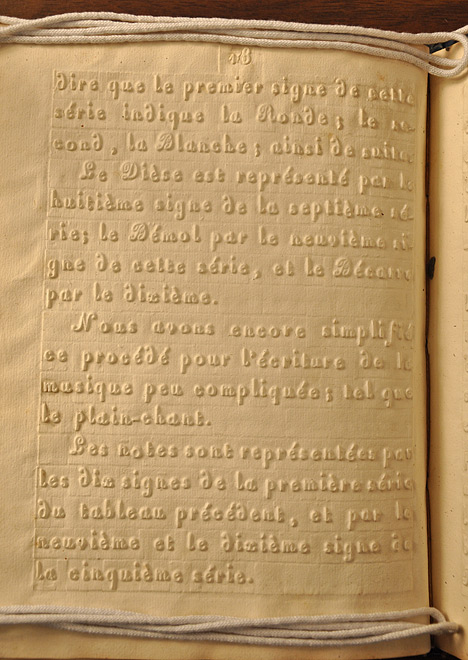 dire que le premier signe de cette
série indique la Ronde; le se-
cond, la Blanche; ainsi de suite.
Le Dièse est représenté par le
huitième signe de la septième sé-
rie; le Bémol par le neuvième si-
gne de cette série, et le Bécarre
par le dixième.
Nous avons encore simplifié
ce procédé pour l'écriture de la
musique peu compliquée; tel que
le plain-chant.
Les notes sont représentées par
les dix signes de la première série
du tableau précédent, et par le
neuvième et le dixième signe de
la cinquième série.